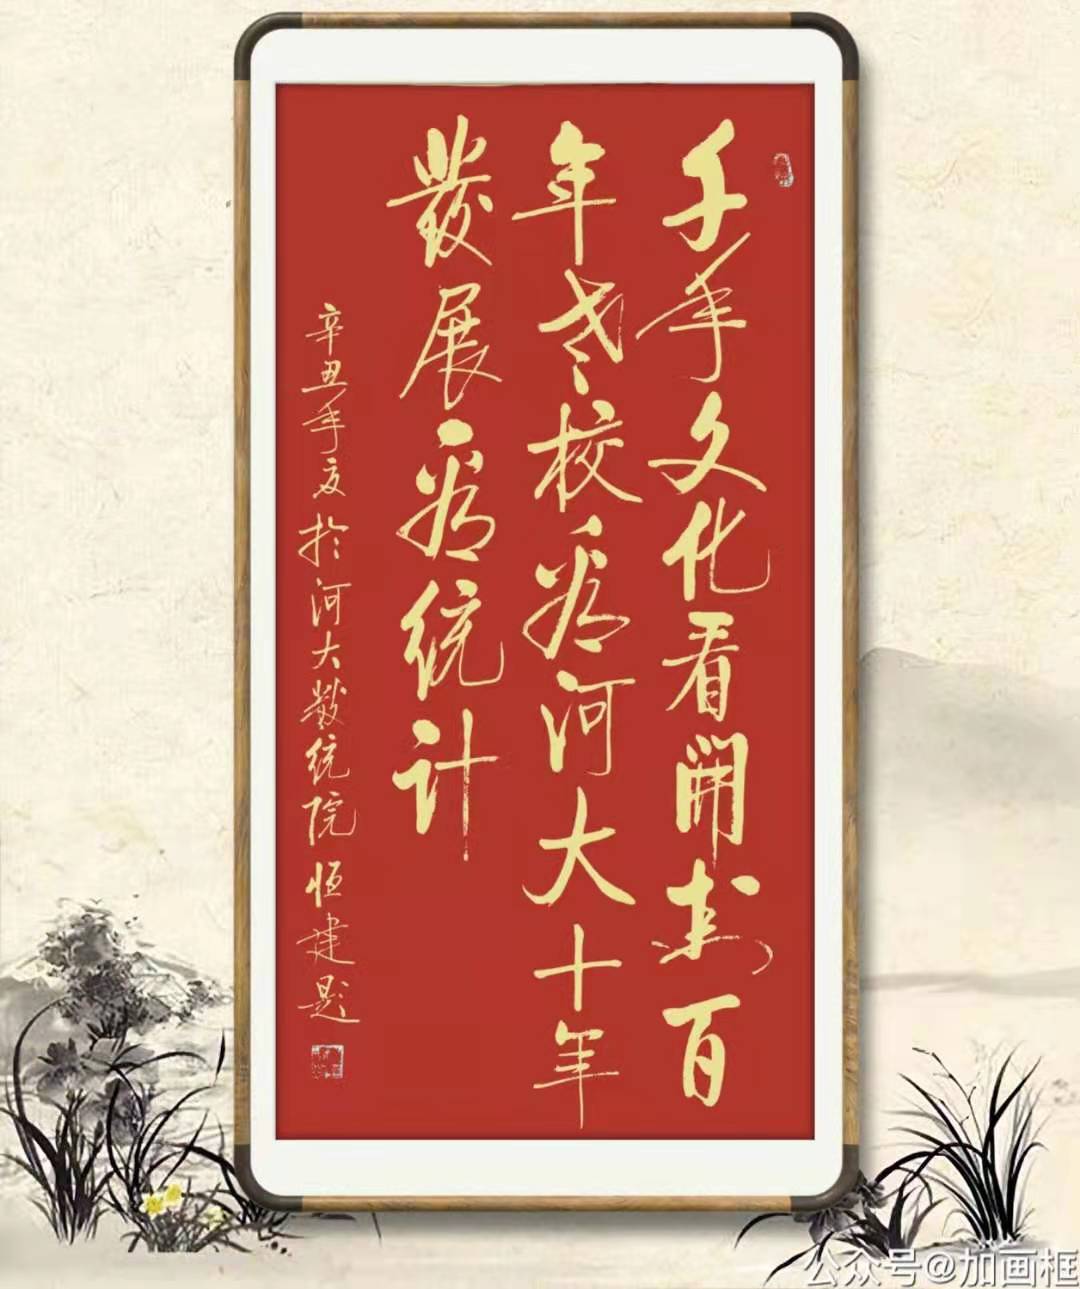 千年文化看開封百
年老校看河大十年
發展看统计
辛丑年夏於河大数统院恒建题
公众号@加画框